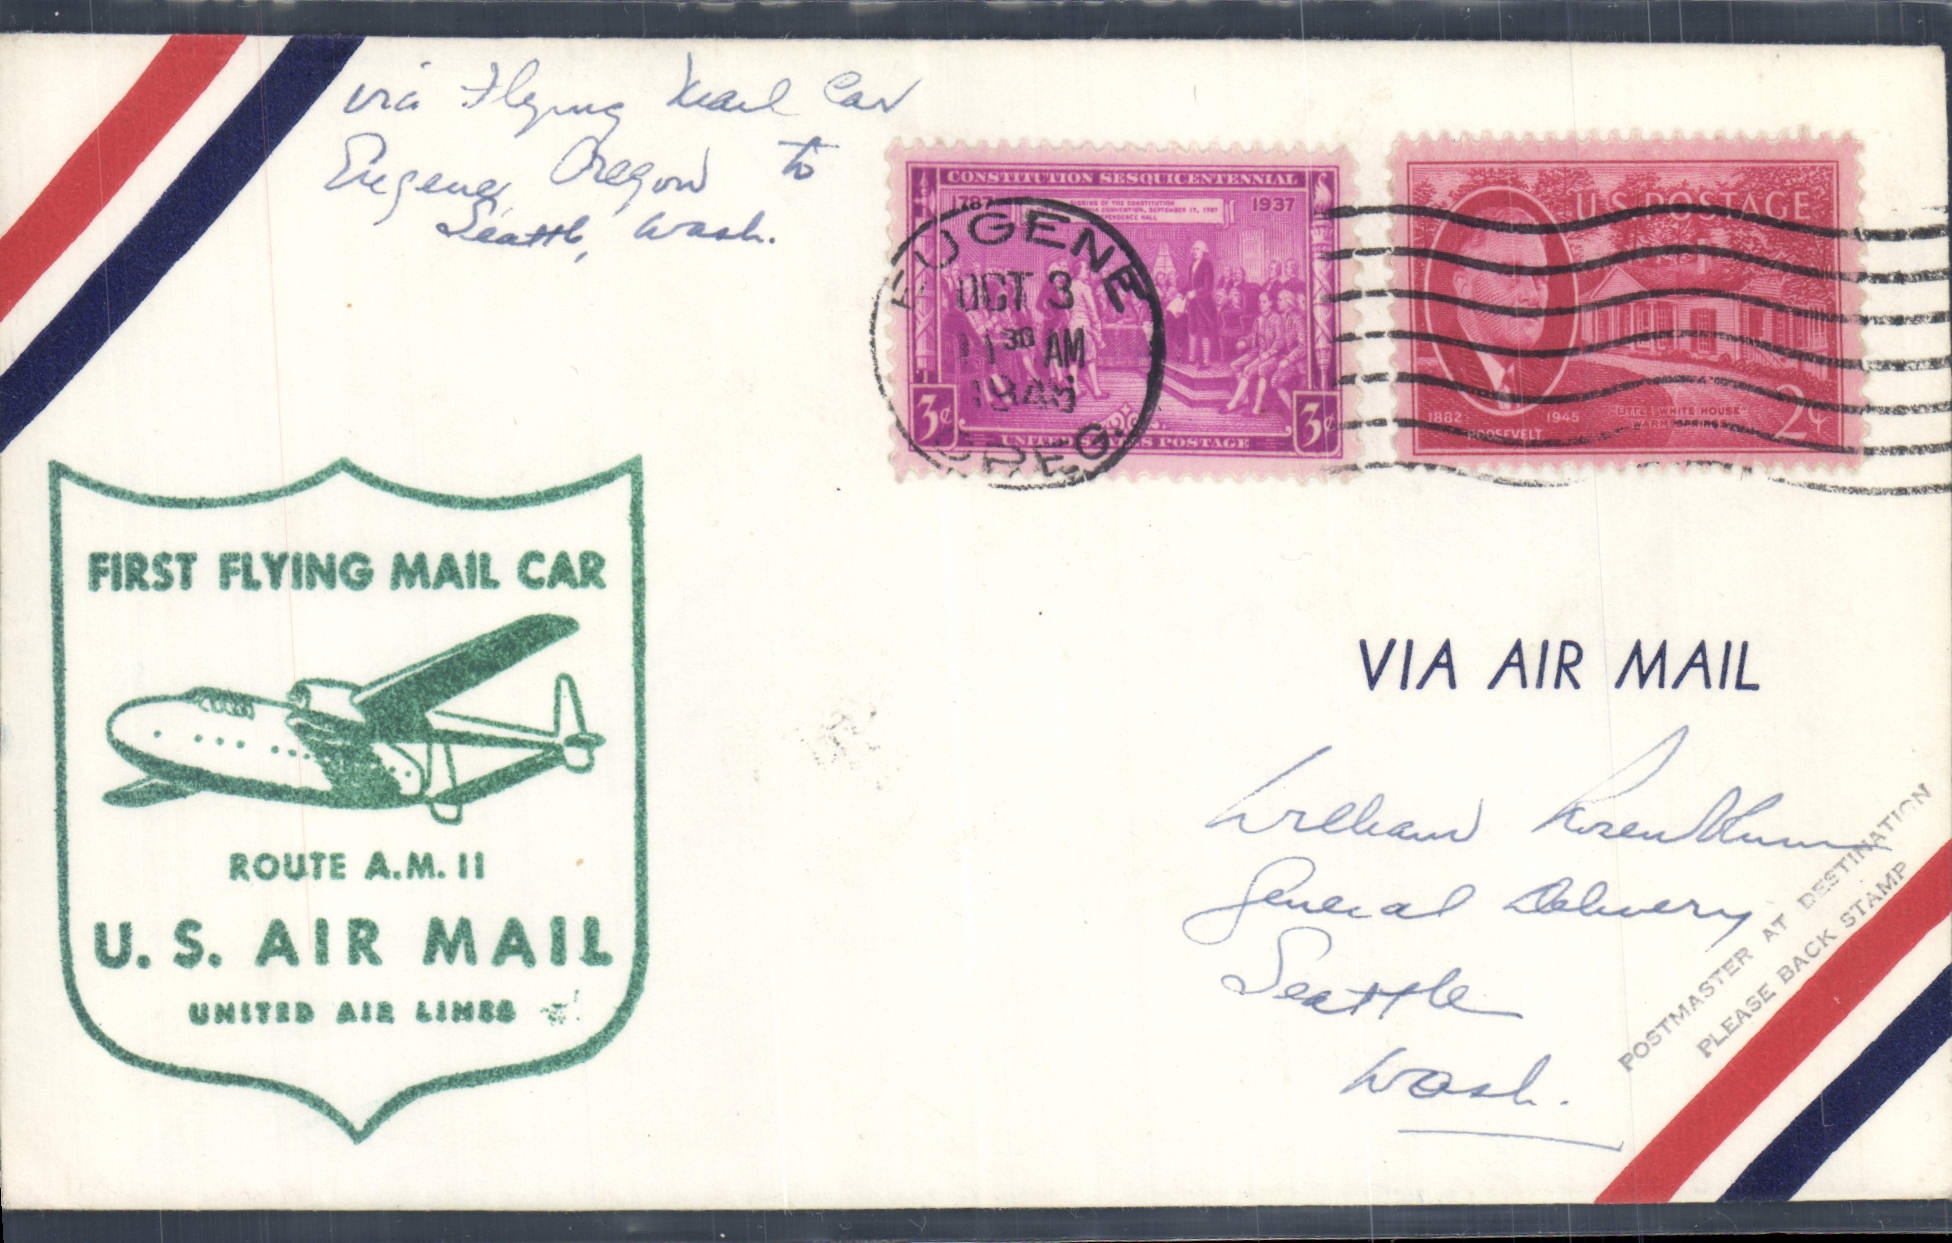 via Flying Mail Car
Eugene, Oregon to
Seattle, Wash.
CONSTITUTION SESQUICENTENNIAL
1787 1937
SIGNING OF THE CONSTITUTION
CONVENTION, SEPTEMBER 17, 1787
INDEPENDENCE HALL
3¢ 3¢
UNITED STATES POSTAGE
EUGENE
OCT 3
11 30 AM
1946
OREG.
U.S. POSTAGE
1882 1945
ROOSEVELT
"LITTLE WHITE HOUSE"
WARM SPRINGS
2¢
FIRST FLYING MAIL CAR
ROUTE A.M. 11
U.S. AIR MAIL
UNITED AIR LINES
VIA AIR MAIL
William Rosenblum
General Delivery
Seattle
Wash.
POSTMASTER AT DESTINATION
PLEASE BACK STAMP